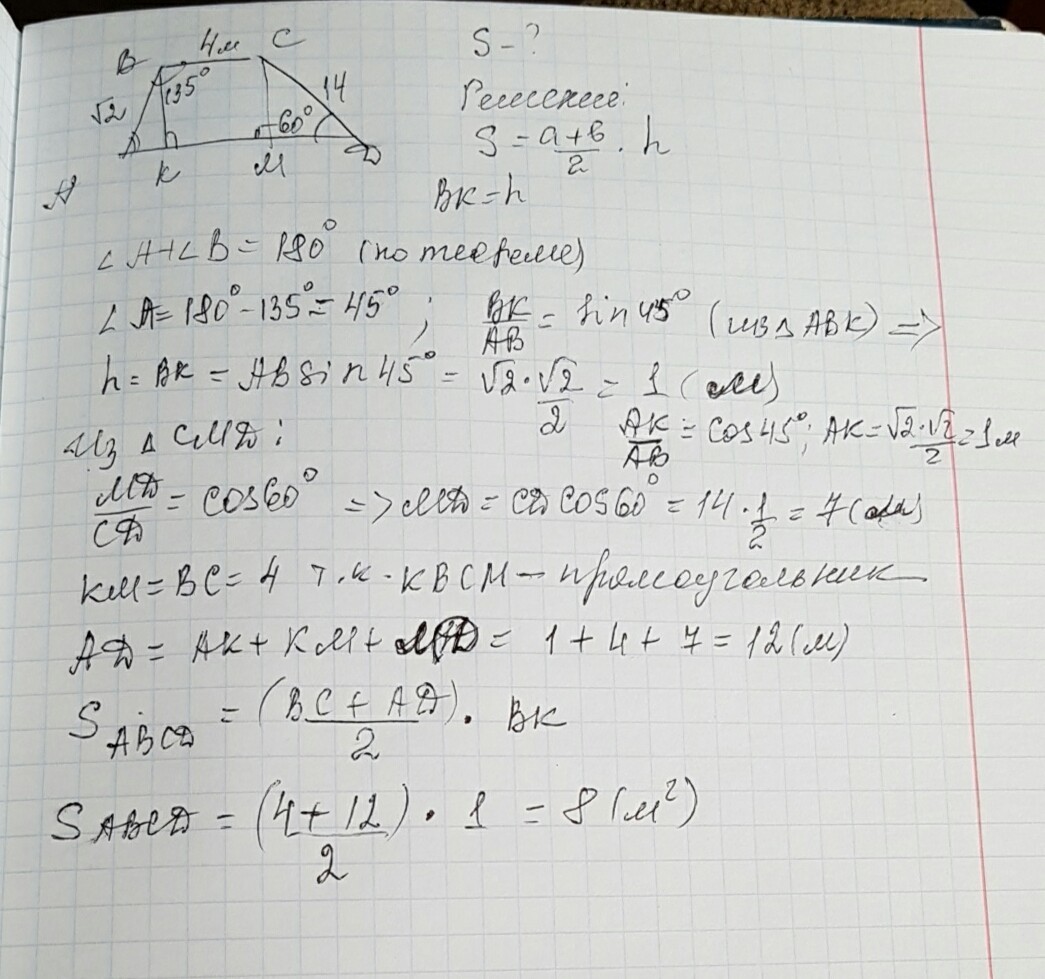 4м
B
C
S - ?
√2
135°
14
60°
A
K
M
D
Решение:
S = (a+b)/2 · h
BK = h
∠A+∠B = 180° (по теореме)
∠A = 180° - 135° = 45° ; BK/AB = sin 45° (из △ABK) =>
h = BK = AB sin 45° = √2 · √2/2 = 1 (м)
AK/AB = cos 45°; AK = √2·√2/2 = 1м
Из △ CMD:
MD/CD = cos 60° => MD = CD cos 60° = 14 · 1/2 = 7 (м)
KM = BC = 4 т.к. KBCM – прямоугольник
AD = AK + KM + MD = 1 + 4 + 7 = 12 (м)
S ABCD = (BC + AD)/2 · BK
S ABCD = (4 + 12)/2 · 1 = 8 (м²)